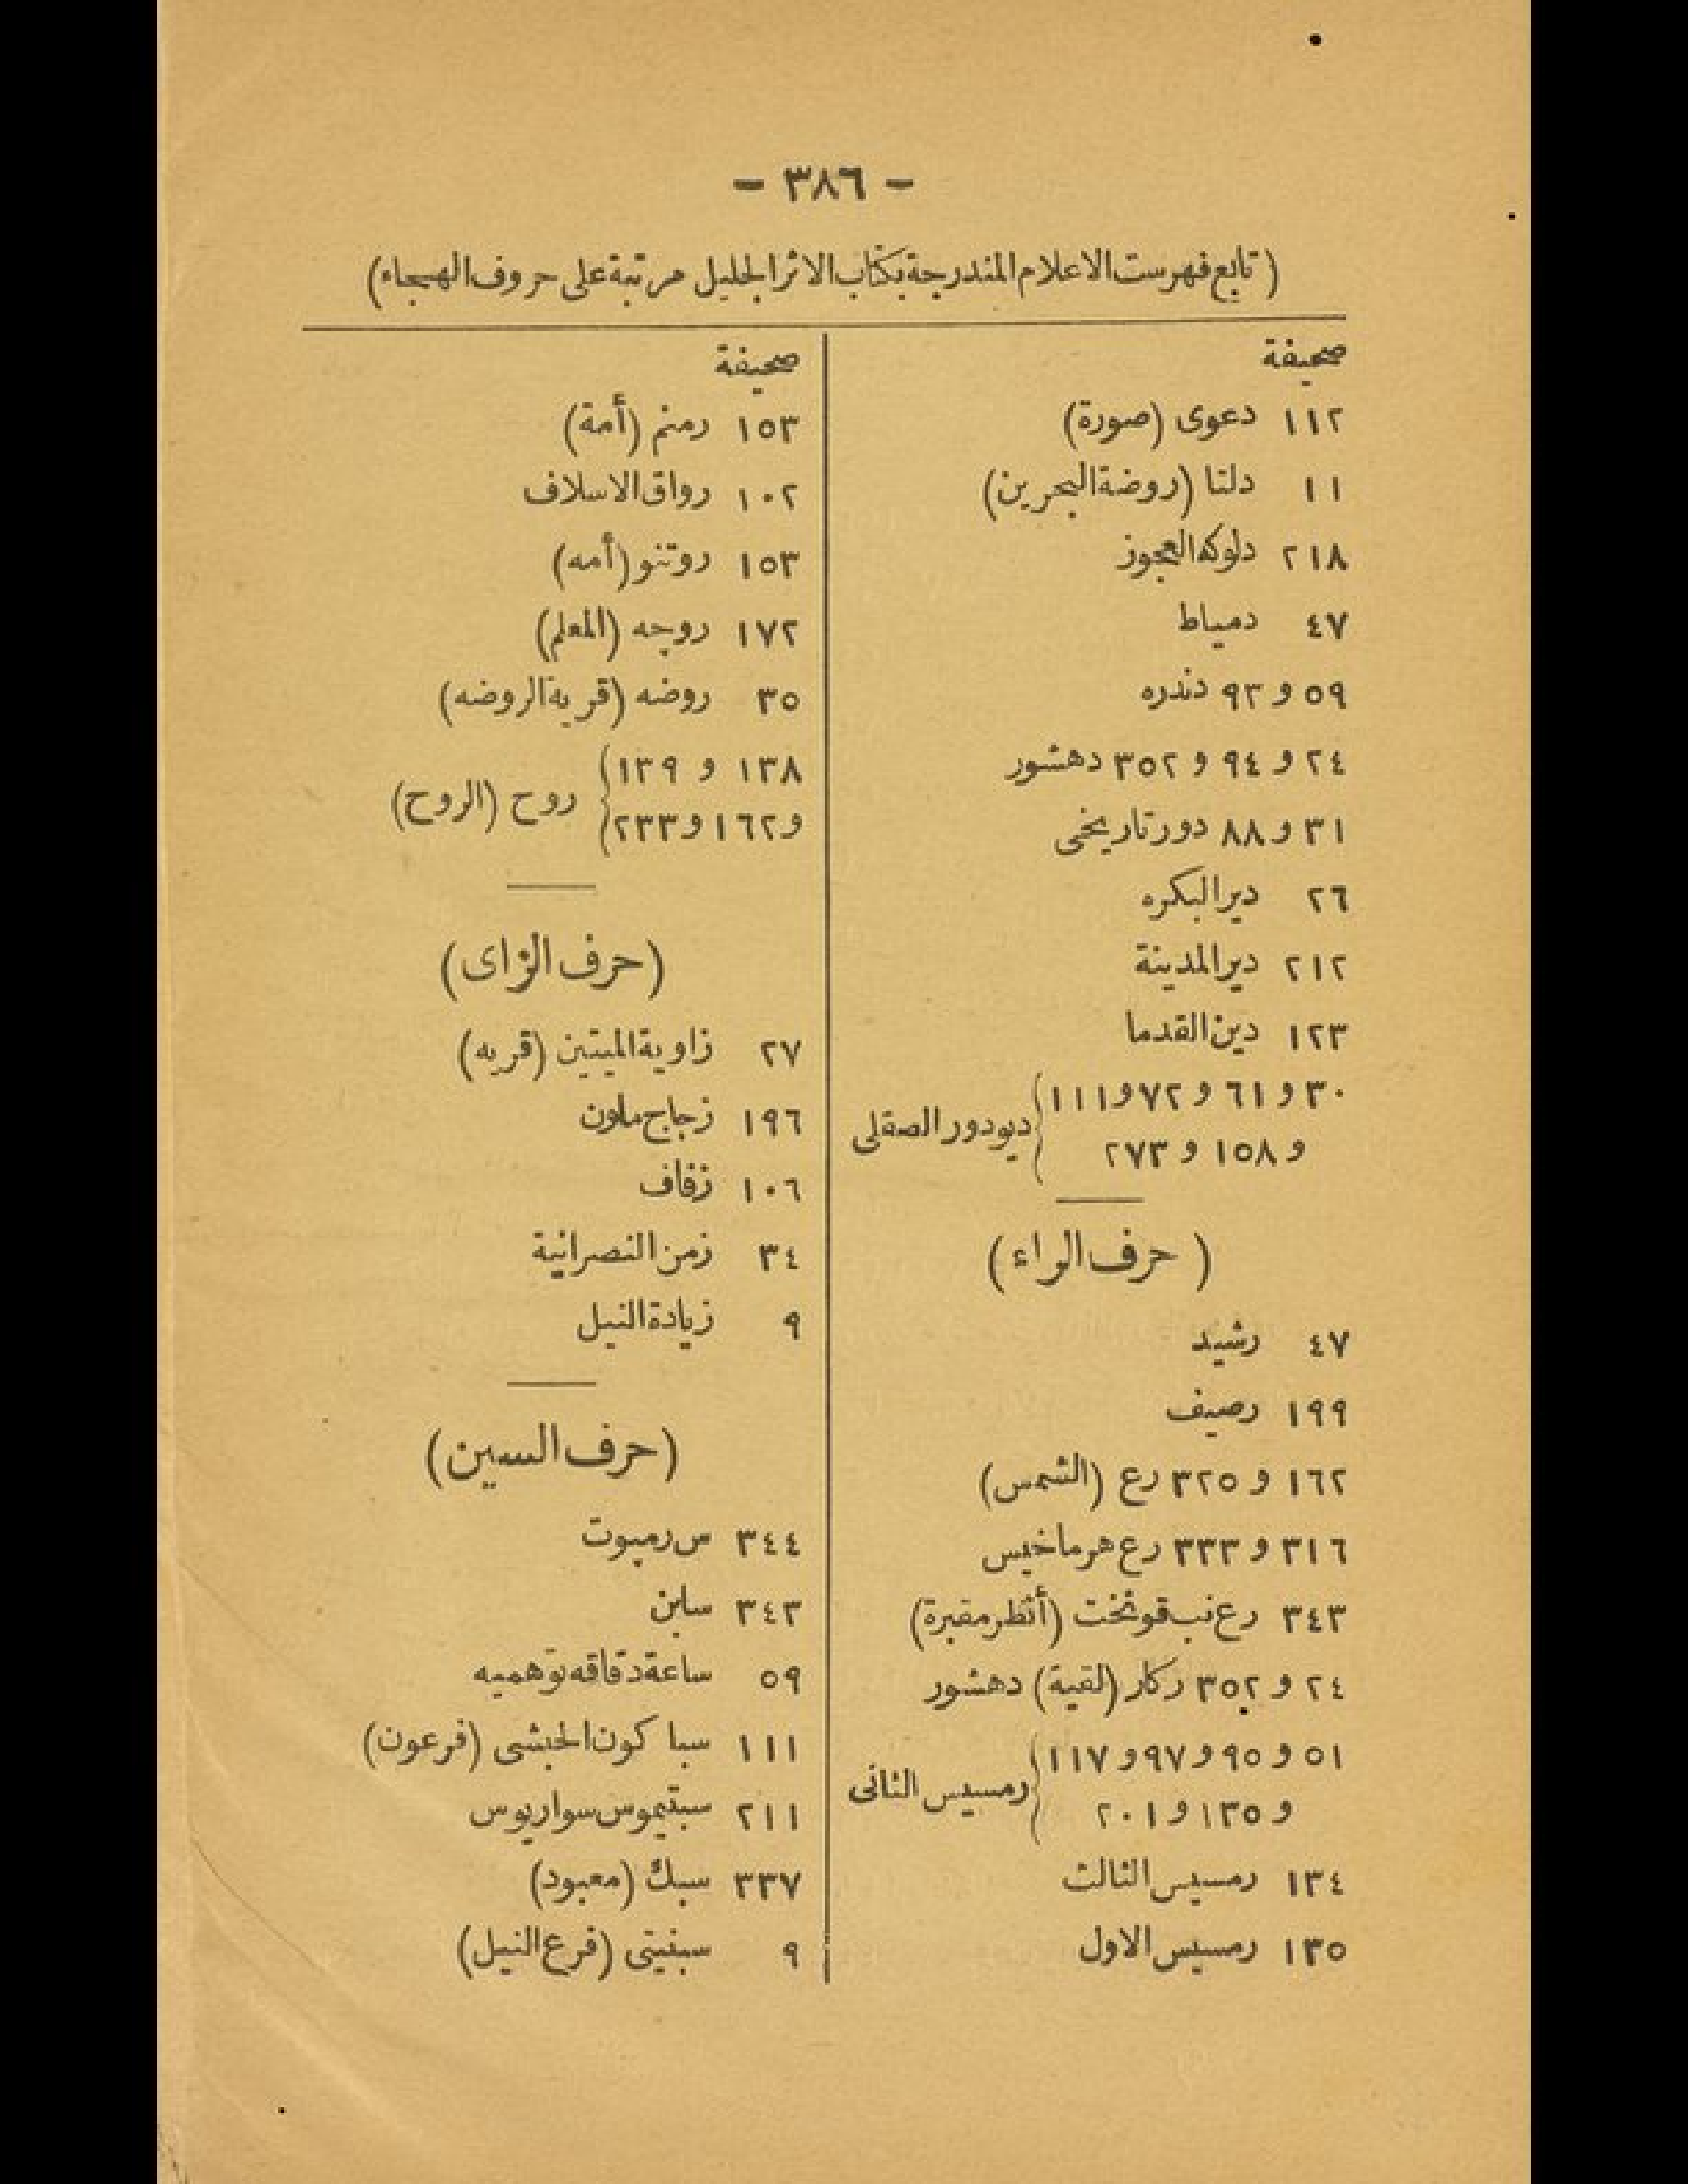 - ٣٨٦ -
(تابع فهرست الاعلام المندرجة بكتاب الاثر الجليل مرتبة على حروف الهجاء)
صحيفة
١١٢ دعوى (صورة)
١١ دلتا (روضة البحرين)
٢١٨ دلوكه العجوز
٤٧ دمياط
٥٩ و ٩٣ دندره
٢٤ و ٩٤ و ٣٥٢ دهشور
٣١ و ٨٨ دور تاريخى
٢٦ دير البكره
٢١٢ دير المدينة
١٢٣ دين القدما
٣٠ و ٦١ و ٧٢ و ١١١
و ١٥٨ و ٢٧٣ ديودور الصقلى
(حرف الراء)
٤٧ رشيد
١٩٩ رصيف
١٦٢ و ٣٢٥ رع (الشمس)
٣١٦ و ٣٣٣ رع هرماخيس
٣٤٣ رع نب قونخت (أنظر مقبرة)
٢٤ و ٣٥٢ ركار (لقية) دهشور
٥١ و ٩٠ و ٩٧ و ١١٧
و ١٣٥ و ٢٠١ رمسيس الثانى
١٣٤ رمسيس الثالث
١٣٥ رمسيس الاول
صحيفة
١٥٣ رمنم (أمة)
١٠٢ رواق الاسلاف
١٥٣ روتنو (أمه)
١٧٢ روجه (المعلم)
٣٥ روضه (قرية الروضه)
١٣٨ و ١٣٩
و ١٦٢ و ٢٣٣ روح (الروح)
(حرف الزاى)
٢٧ زاوية الميتين (قريه)
١٩٦ زجاج ملون
١٠٦ زفاف
٣٤ زمن النصرانية
٩ زيادة النيل
(حرف السين)
٣٤٤ س رمبوت
٣٤٣ سابن
٥٩ ساعة دقاقه توهميه
١١١ سباكون الحبشى (فرعون)
٢١١ سبتيموس سواريوس
٣٣٧ سبك (معبود)
٩ سبنيتى (فرع النيل)